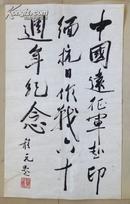 中國遠征軍赴印
緬抗日作戰六十
週年紀念